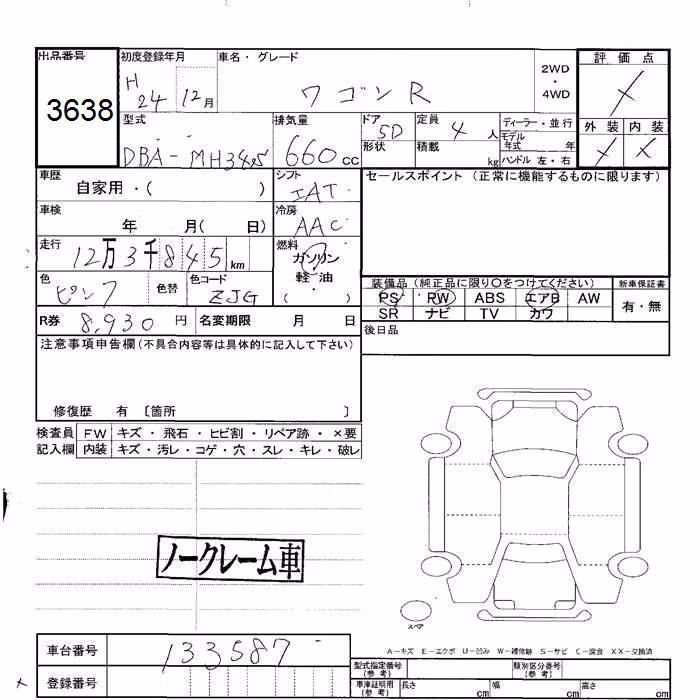 出品番号 初度登録年月 車名・グレード 評価点
3638
H 24 12月 ワゴンR 2WD ・ 4WD
外装 内装
型式 DBA-MH34S 排気量 660cc ドア 5D 形状 定員 4人 積載 kg ディーラー・並行 モデル年式 年 ハンドル 左・右
車歴 自家用・( ) シフト IAT セールスポイント (正常に機能するものに限ります)
車検 年 月( 日) 冷房 AAC
走行 12万3千845km 燃料 ガソリン 軽油 ( )
色 ピンク 色替 色コード ZJG
装備品 (純正品に限り〇をつけてください) 新車保証書
PS PW ABS エアB AW 有・無
SR ナビ TV カワ
R券 8,930円 名変期限 月 日
後日品
注意事項申告欄(不具合内容等は具体的に記入して下さい)
修復歴 有 〔箇所 〕
検査員 FW キズ・飛石・ヒビ割・リペア跡・×要
記入欄 内装 キズ・汚レ・コゲ・穴・スレ・キレ・破レ
ノークレーム車
スペア
A-キズ E-エクボ U-凹み W-補修跡 S-サビ C-腐食 XX-交換済
車台番号 133587
型式指定番号(参考) 類別区分番号(参考)
登録番号
車庫証明用(参考) 長さ cm 幅 cm 高さ cm